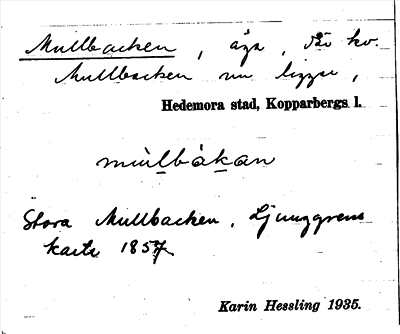 Mullbacken, äga, där kv.
Mullbacken nu ligger,
Hedemora stad, Kopparbergs l.
mùlbàkan
Stora Mullbacken. Ljunggrens
karta 1857
Karin Hessling 1935.